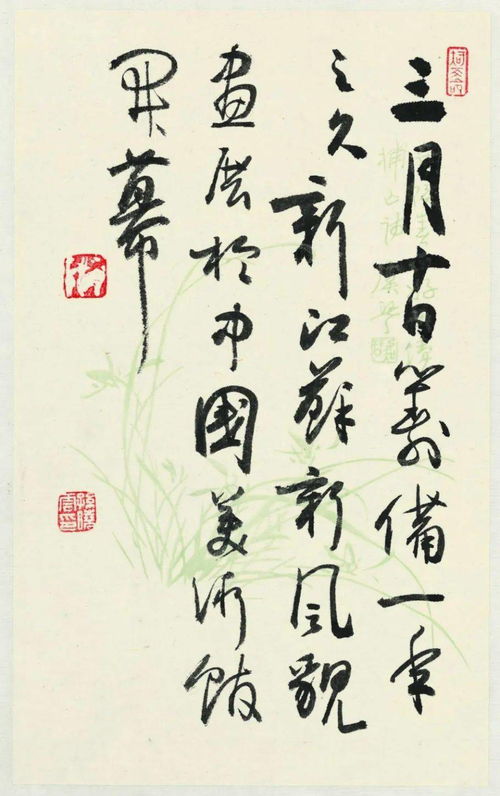 三月十日筹備一年
之久新江蘇新風貌
畫展於中國美術館
開幕